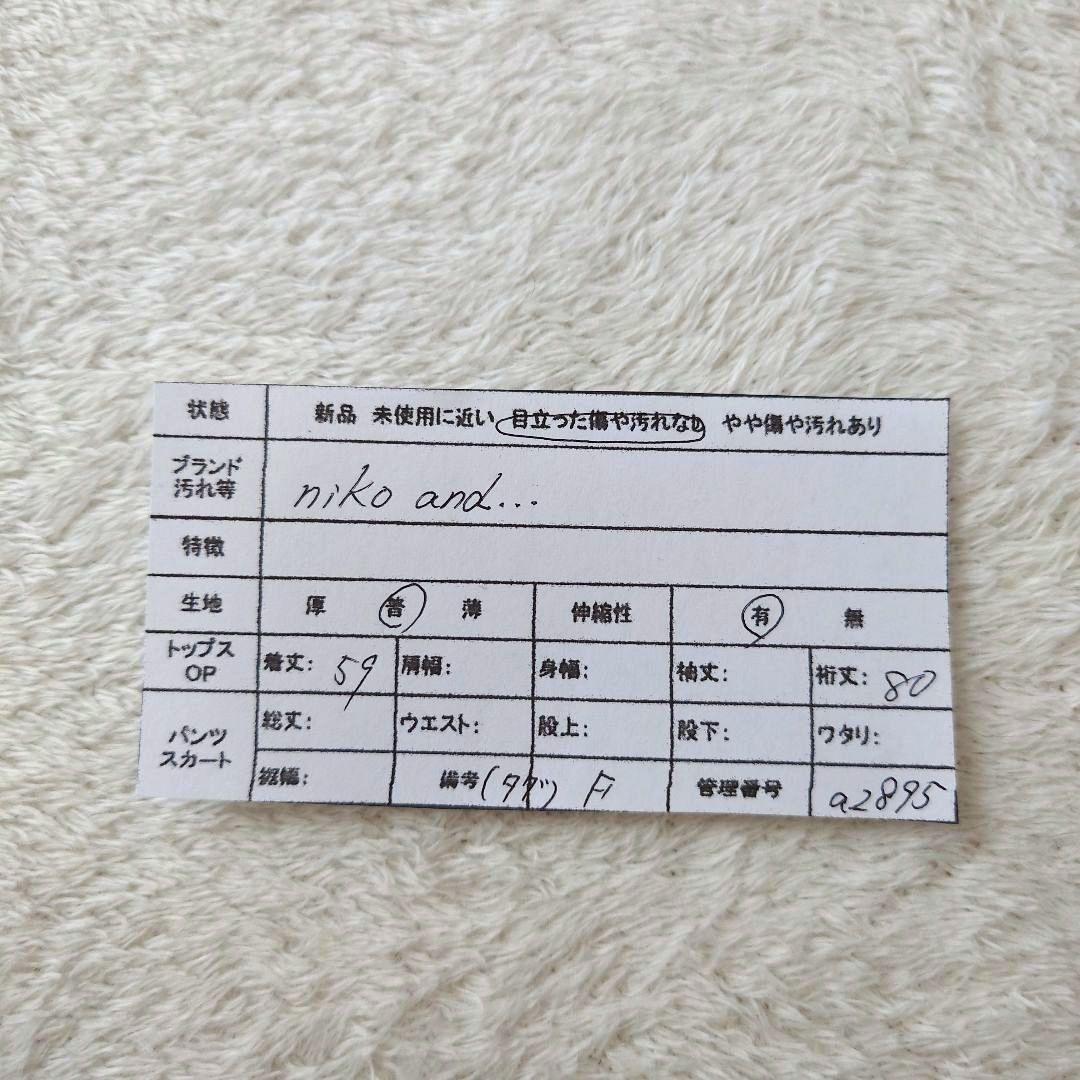 状態 新品 未使用に近い 目立った傷や汚れなし やや傷や汚れあり
ブランド
汚れ等 niko and...
特徴
生地 厚 普 薄 伸縮性 有 無
トップス
OP 着丈: 59 肩幅: 身幅: 袖丈: 裄丈: 80
パンツ
スカート 総丈: ウエスト: 股上: 股下: ワタリ:
裾幅: 備考 (タグ) F 管理番号 a2895